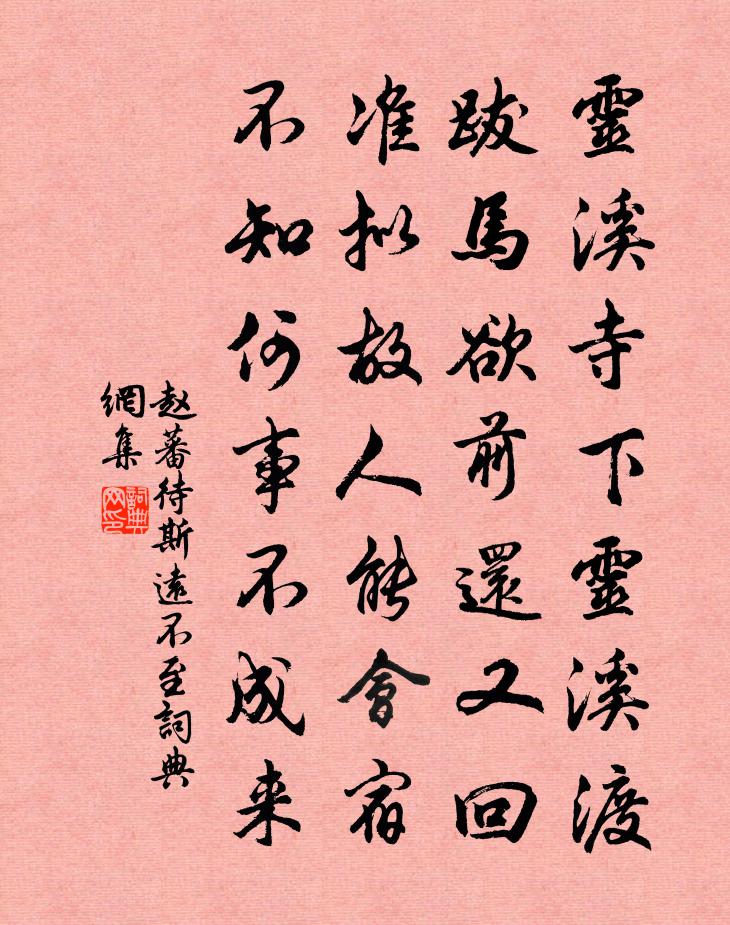 靈溪寺下靈溪渡
跋馬欲前還又回
准拟故人能會宿
不知何事不成来
赵蕃待斯遠不至詞典
網集
詞典
网印